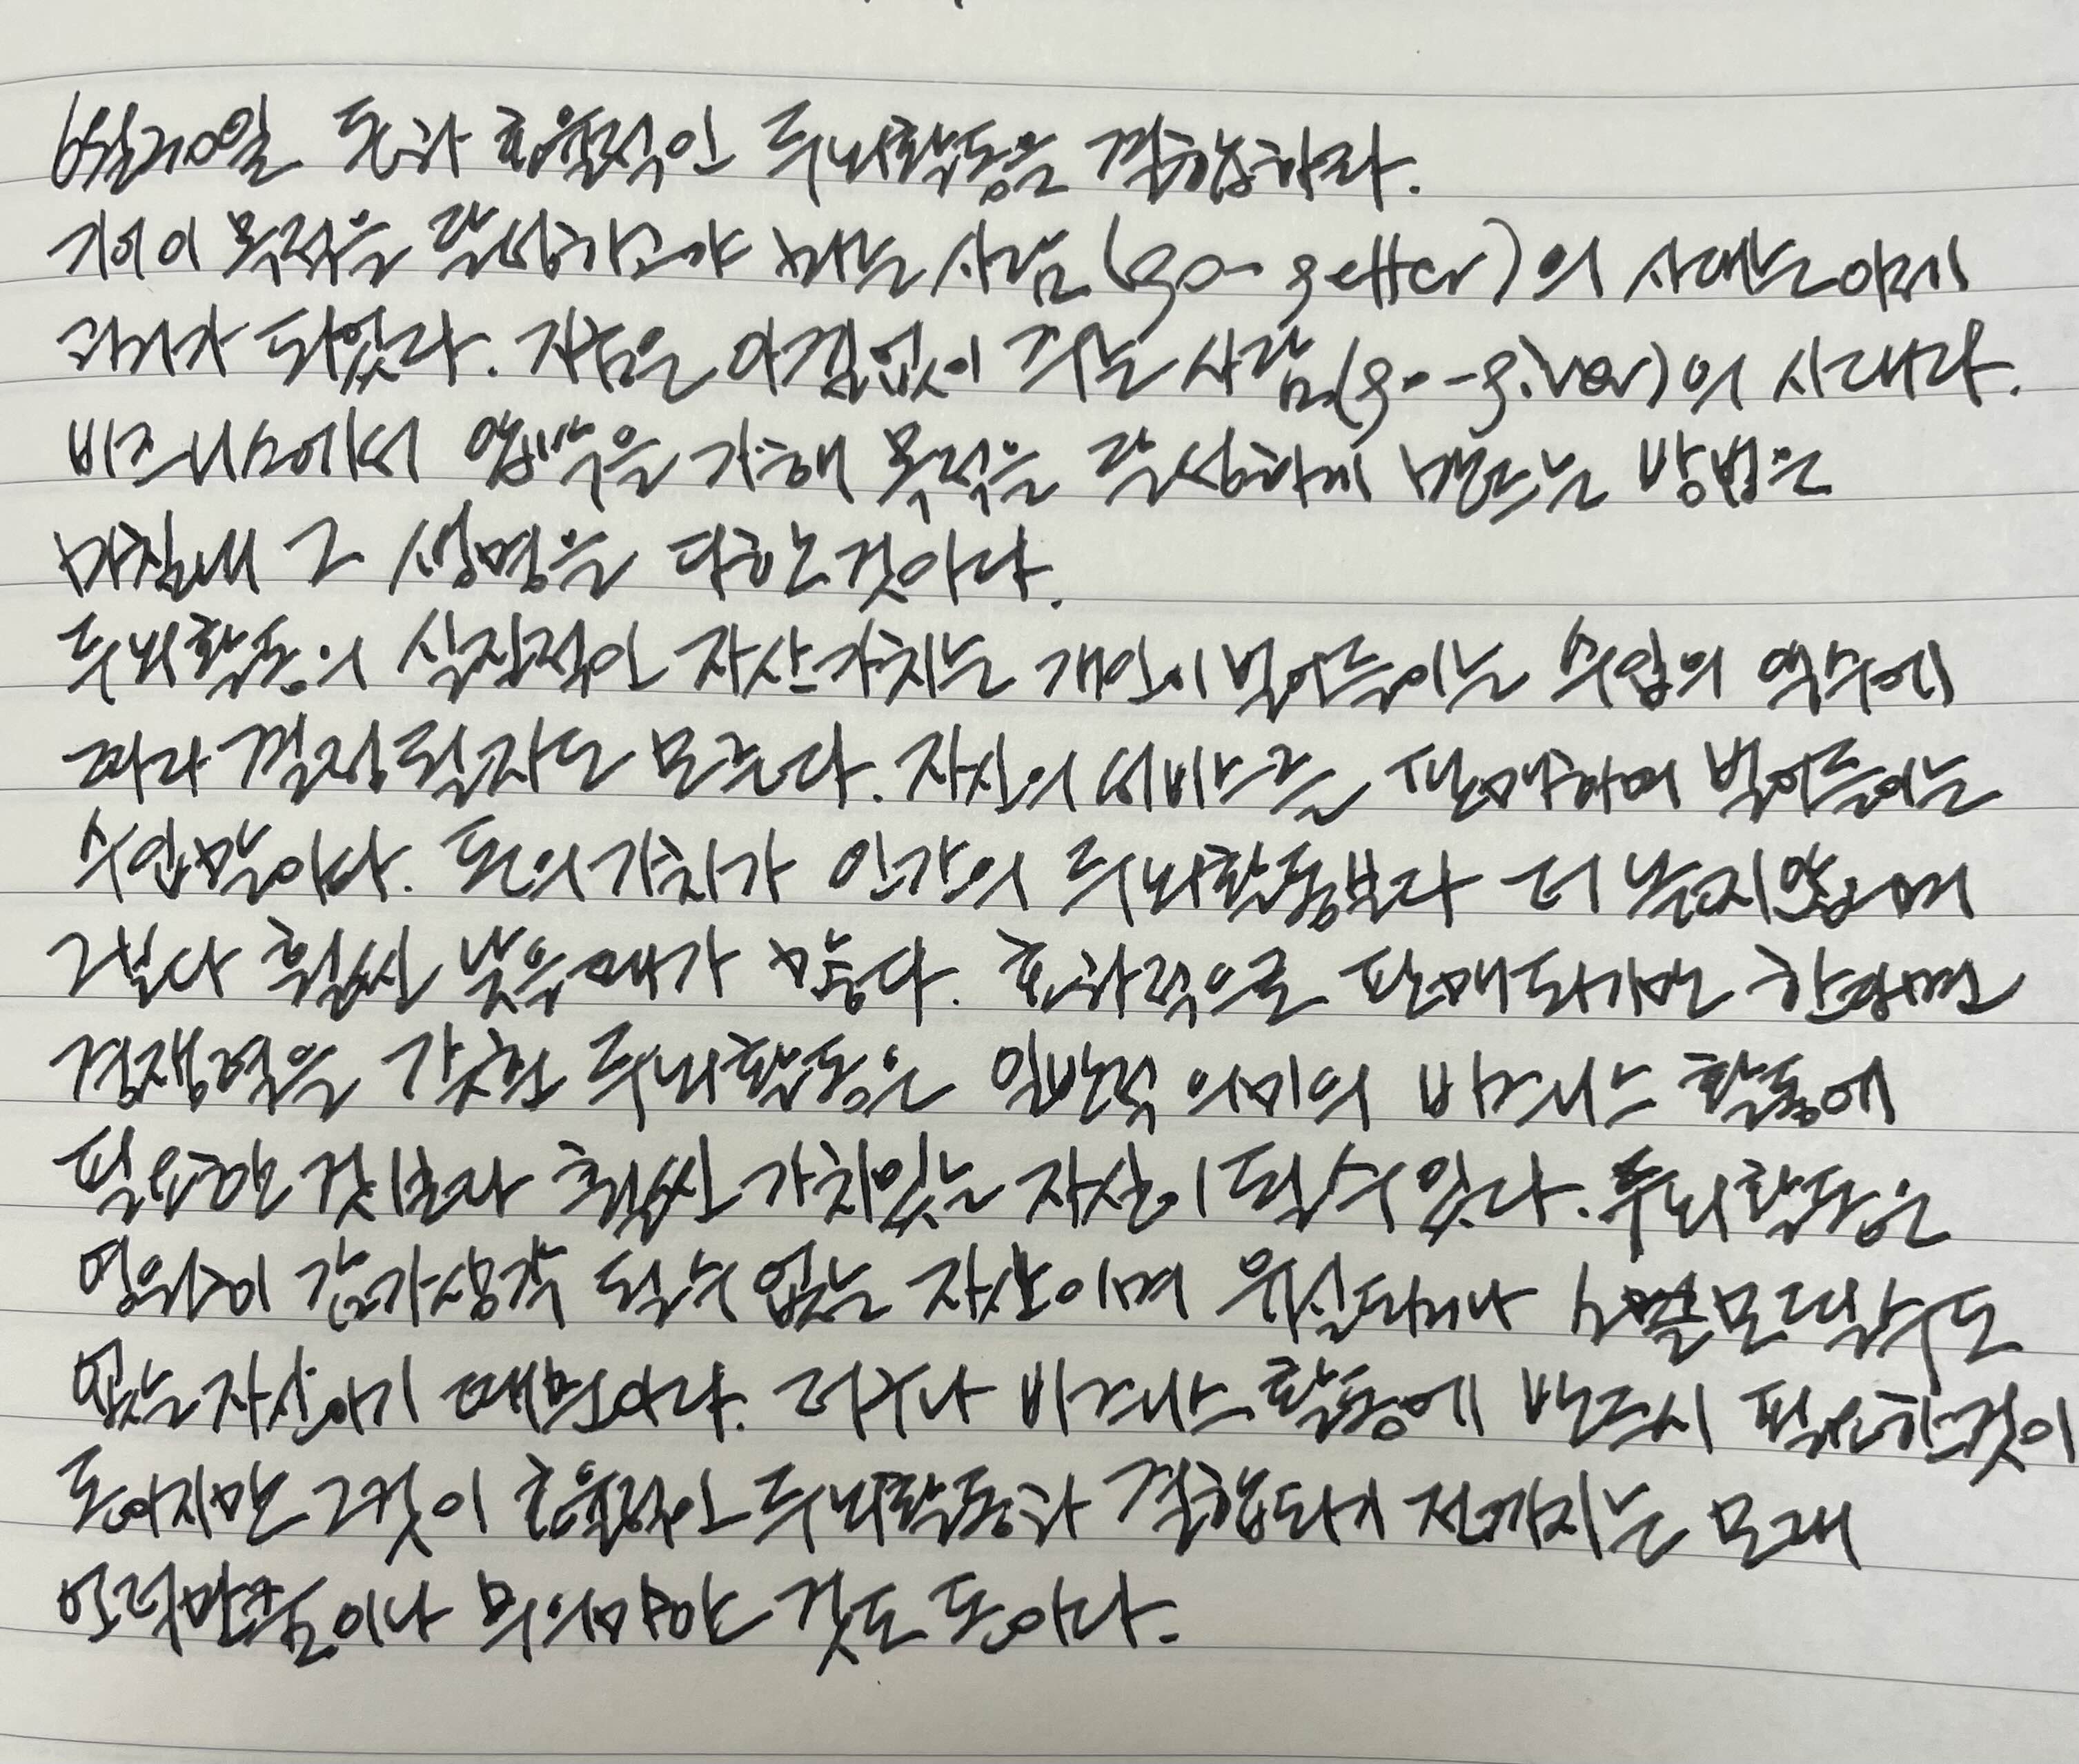 6월20일 돈과 효율적인 두뇌활동을 결합하라.
기어이 목적을 달성하고야 마는 사람(go-getter)의 시대는 이미
과거가 되었다. 지금은 아낌없이 주는 사람(go-giver)의 시대다.
비즈니스에서 압박을 가해 목적을 달성하게 만드는 방법은
마침내 그 생명을 다한 것이다.
두뇌활동의 실질적인 자산가치는 개인이 벌어들이는 수입의 액수에
따라 결정될지도 모른다. 자신의 서비스를 판매하여 벌어들이는
수입 말이다. 돈의 가치가 인간의 두뇌활동보다 더 높지 않으며
그보다 훨씬 낮을 때가 많다. 효과적으로 판매되기만 한다면
경쟁력을 갖춘 두뇌활동은 일반적 의미의 비즈니스 활동에
필요한 것보다 훨씬 가치있는 자산이 될 수 있다. 두뇌활동은
영원히 감가상각 될 수 없는 자산이며 유실되거나 써물모 될 수도
없는 자산이기 때문이다. 더구나 비즈니스 활동에 반드시 필요한 것이
돈이지만 그것이 효율적인 두뇌활동과 결합되기 전까지는 모래
언덕만큼이나 무의미한 것도 돈이다.